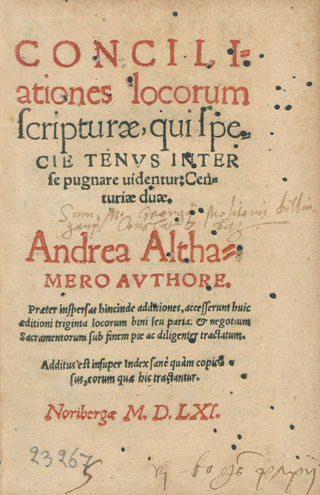 CONCILI-
ationes locorum
scripturæ, qui spe-
CIE TENVS INTER
se pugnare uidentur: Cen-
turiæ duæ.
Sum M. Georgii Molitoris
Andrea Altha-
MERO AVTHORE.
Præter inspersas hincinde additiones, accesserunt huic
æditioni triginta locorum bini seu paria: & negotium
Sacramentorum sub finem pie ac diligenter tractatum.
Additus est insuper Index sanè quàm copio-
sus, eorum quæ hîc tractantur.
Noribergæ M. D. LXI.
23267